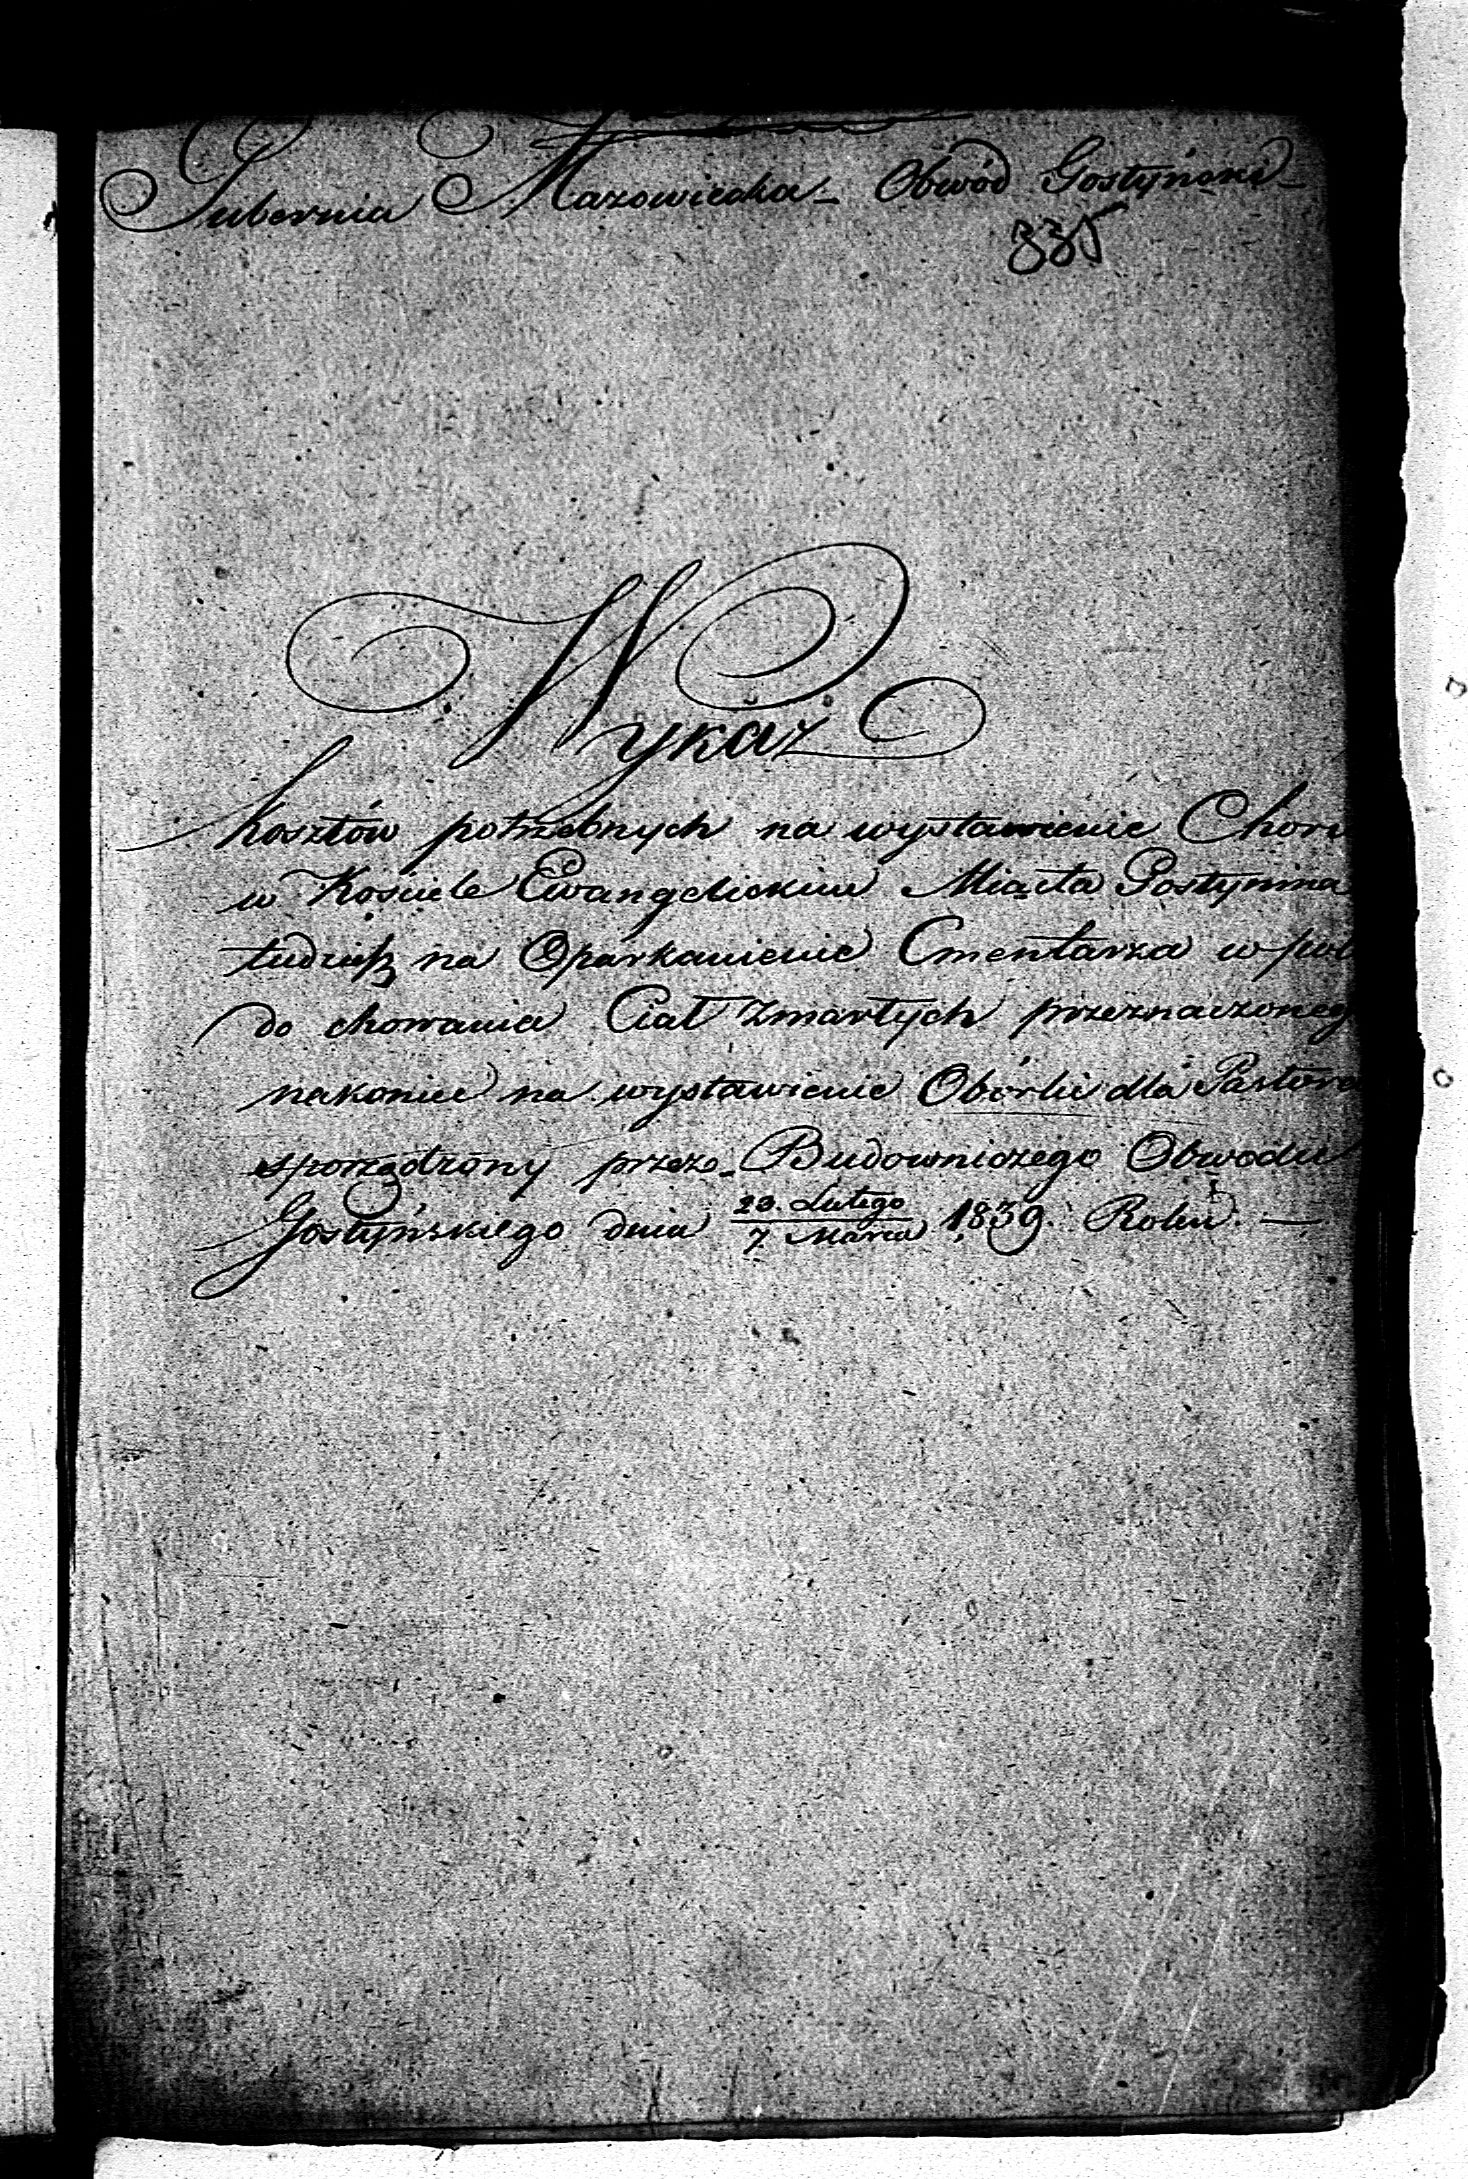 Gubernia Mazowiecka_ Obwód Gostyński_
335
Wykaz
kosztów potrzebnych na wystawienie Choru
w Kościele Ewangelickim Miasta Gostynina
tudzież na Oparkanienie Cmentarza w pol
do chowania Ciał Zmarłych przeznaczoneg
nakoniec na wystawienie Oborki dla Pastora
sporządzony przez Budowniczego Obwodu
Gostyńskiego dnia 23. Lutego / 7 Marca 1839. Roku. —